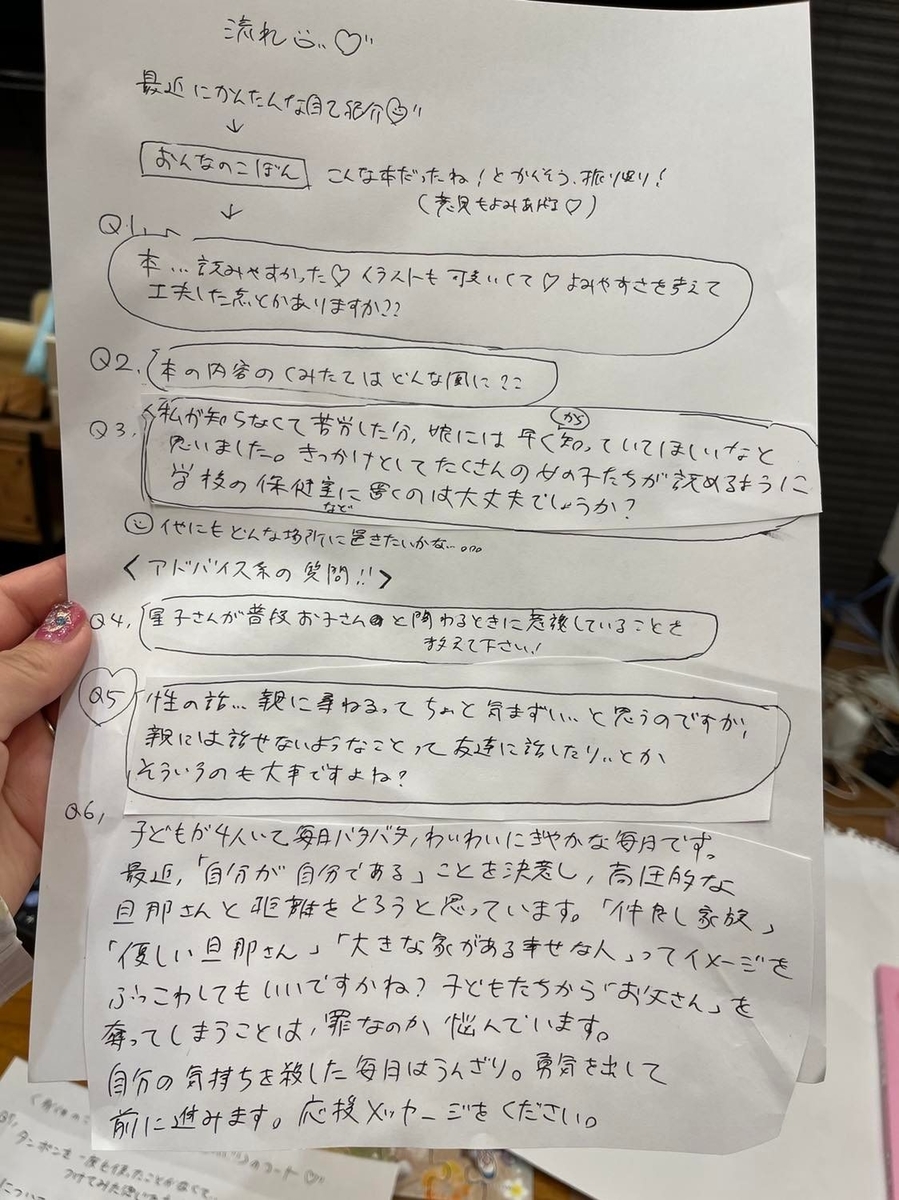 流れ
最近にかんたんな自己紹介
おんなのこぼん こんな本だったね!とかんそう、振り返り!
(意見もよみあげる♡)
Q1,
本…読みやすかった♡ イラストも可愛いくて♡ よみやすさを考えて
工夫した点とかありますか??
Q2, 本の内容のくみたてはどんな風に??
Q3, 私が知らなくて苦労した分、娘には早くから知っていてほしいなと
思いました。きっかけとしてたくさんの女の子たちが読めるように
学校の保健室などに置くのは大丈夫でしょうか?
他にもどんな場所に置きたいかな…。。。
<アドバイス系の質問!!>
Q4, 星子さんが普段お子さんと関わるときに意識していることを
教えて下さい!
Q5 性の話…親に尋ねるってちょっと気まずい…と思うのですが、
親には話せないようなことって友達に話したり..とか
そういうのも大事ですよね?
Q6,
子どもが4人いて毎日バタバタ、わいわいにぎやかな毎日です。
最近、「自分が自分である」ことを決意し、高圧的な
旦那さんと距離をとろうと思っています。「仲良し家族」
「優しい旦那さん」「大きな家がある幸せな人」ってイメージを
ぶっこわしてもいいですかね?子どもたちから「お父さん」を
奪ってしまうことは、罪なのか、悩んでいます。
自分の気持ちを殺した毎日はうんざり。勇気を出して
前に進みます。応援メッセージをください。
のコーナー♡
タンポンを一度も使ったことがなくて
つけてみた
について